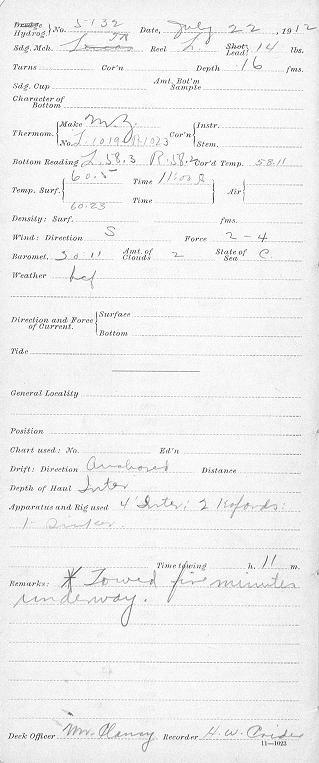 Dredge
Hydrog. No. 5132 Date, July 22, 1912
Sdg. Mch. Reel L. Shot Lead 14 lbs.
Turns Cor'n Depth 16 fms.
Sdg. Cup Amt. Bot'm Sample
Character of Bottom
Thermom. Make M.Z. Cor'n Instr.
No. L.1019 R.1023 Stem.
Bottom Reading L.58.3 R.58.2 Cor'd Temp. 58.11
Temp. Surf. 60.5 Time 11:00 a Air
60.23 Time
Density: Surf. fms.
Wind: Direction S Force 2-4
Baromet. 30.11 Amt. of Clouds 2 State of Sea C
Weather bcf
Direction and Force of Current. Surface
Bottom
Tide
General Locality
Position
Chart used: No. Ed'n
Drift: Direction Anchored Distance
Depth of Haul Inter
Apparatus and Rig used 4' Inter; 2 Kofoids:
1 Sinker.
Time towing h. 11 m.
Remarks: * Towed five minutes
underway.
Deck Officer Mr. Clancy Recorder H.W.
11—1023